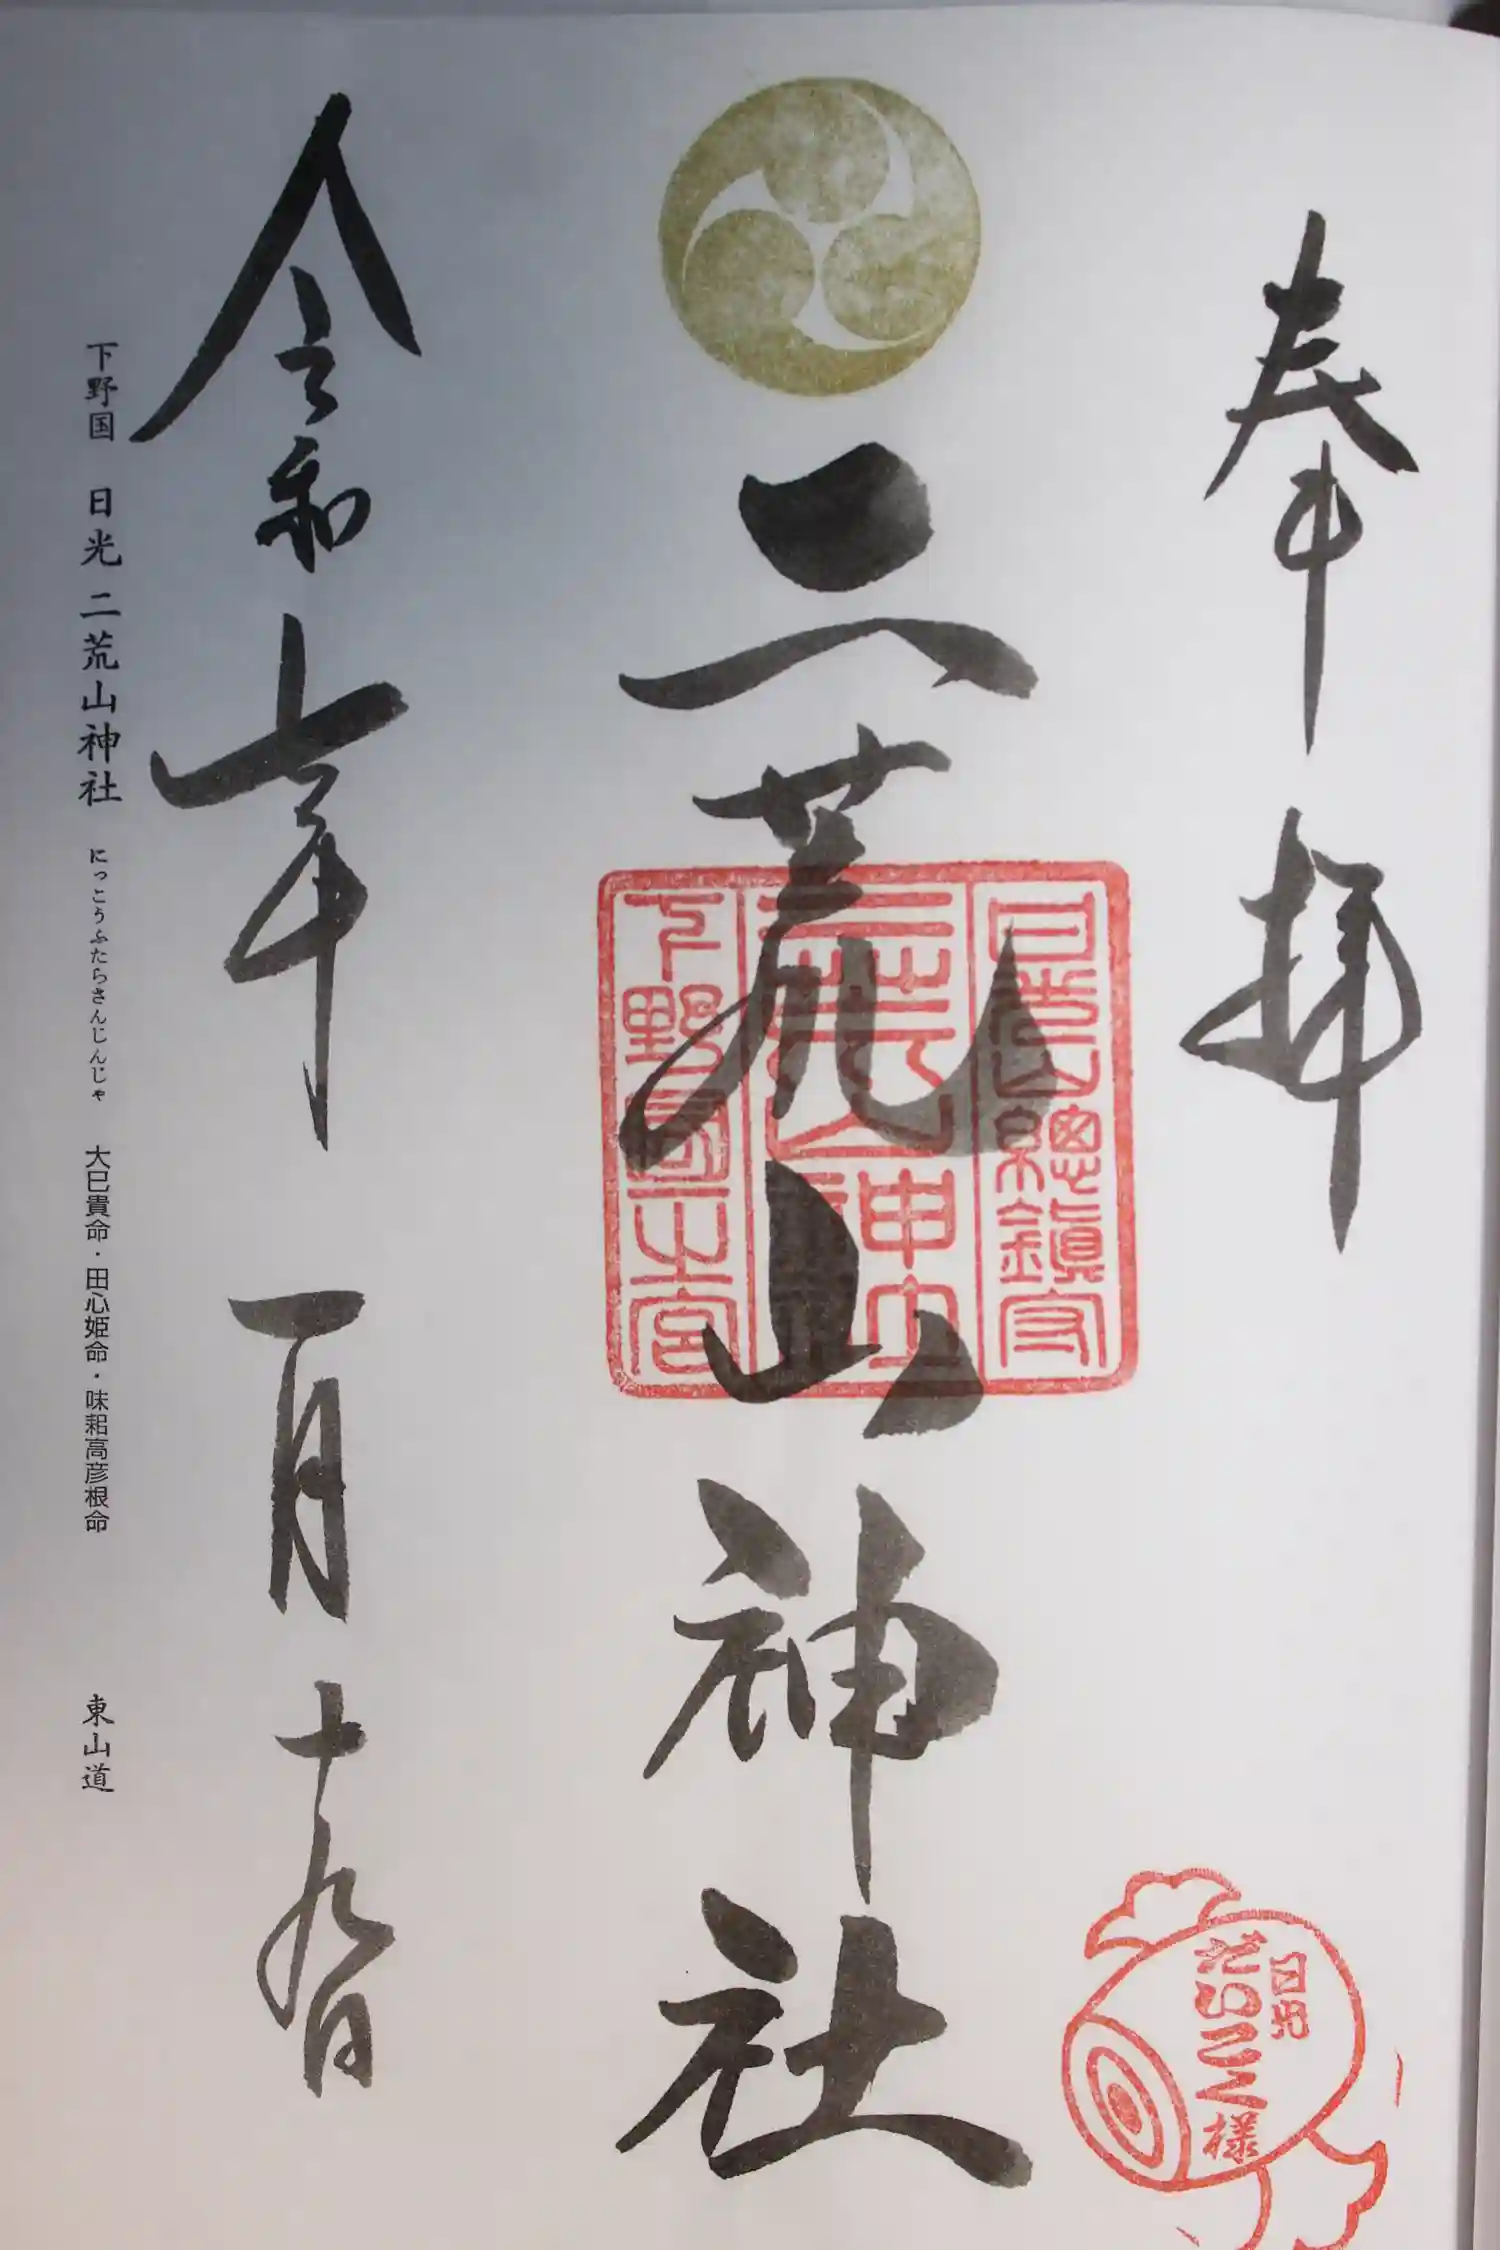 奉拝
日光
だいこく様
二荒山神社
日光山總鎮守
二荒山神社
下野國一之宮
令和七年 一月十九日
下野国 日光 二荒山神社 にっこうふたらさんじんじゃ 大巳貴命・田心姫命・味耜高彦根命 東山道